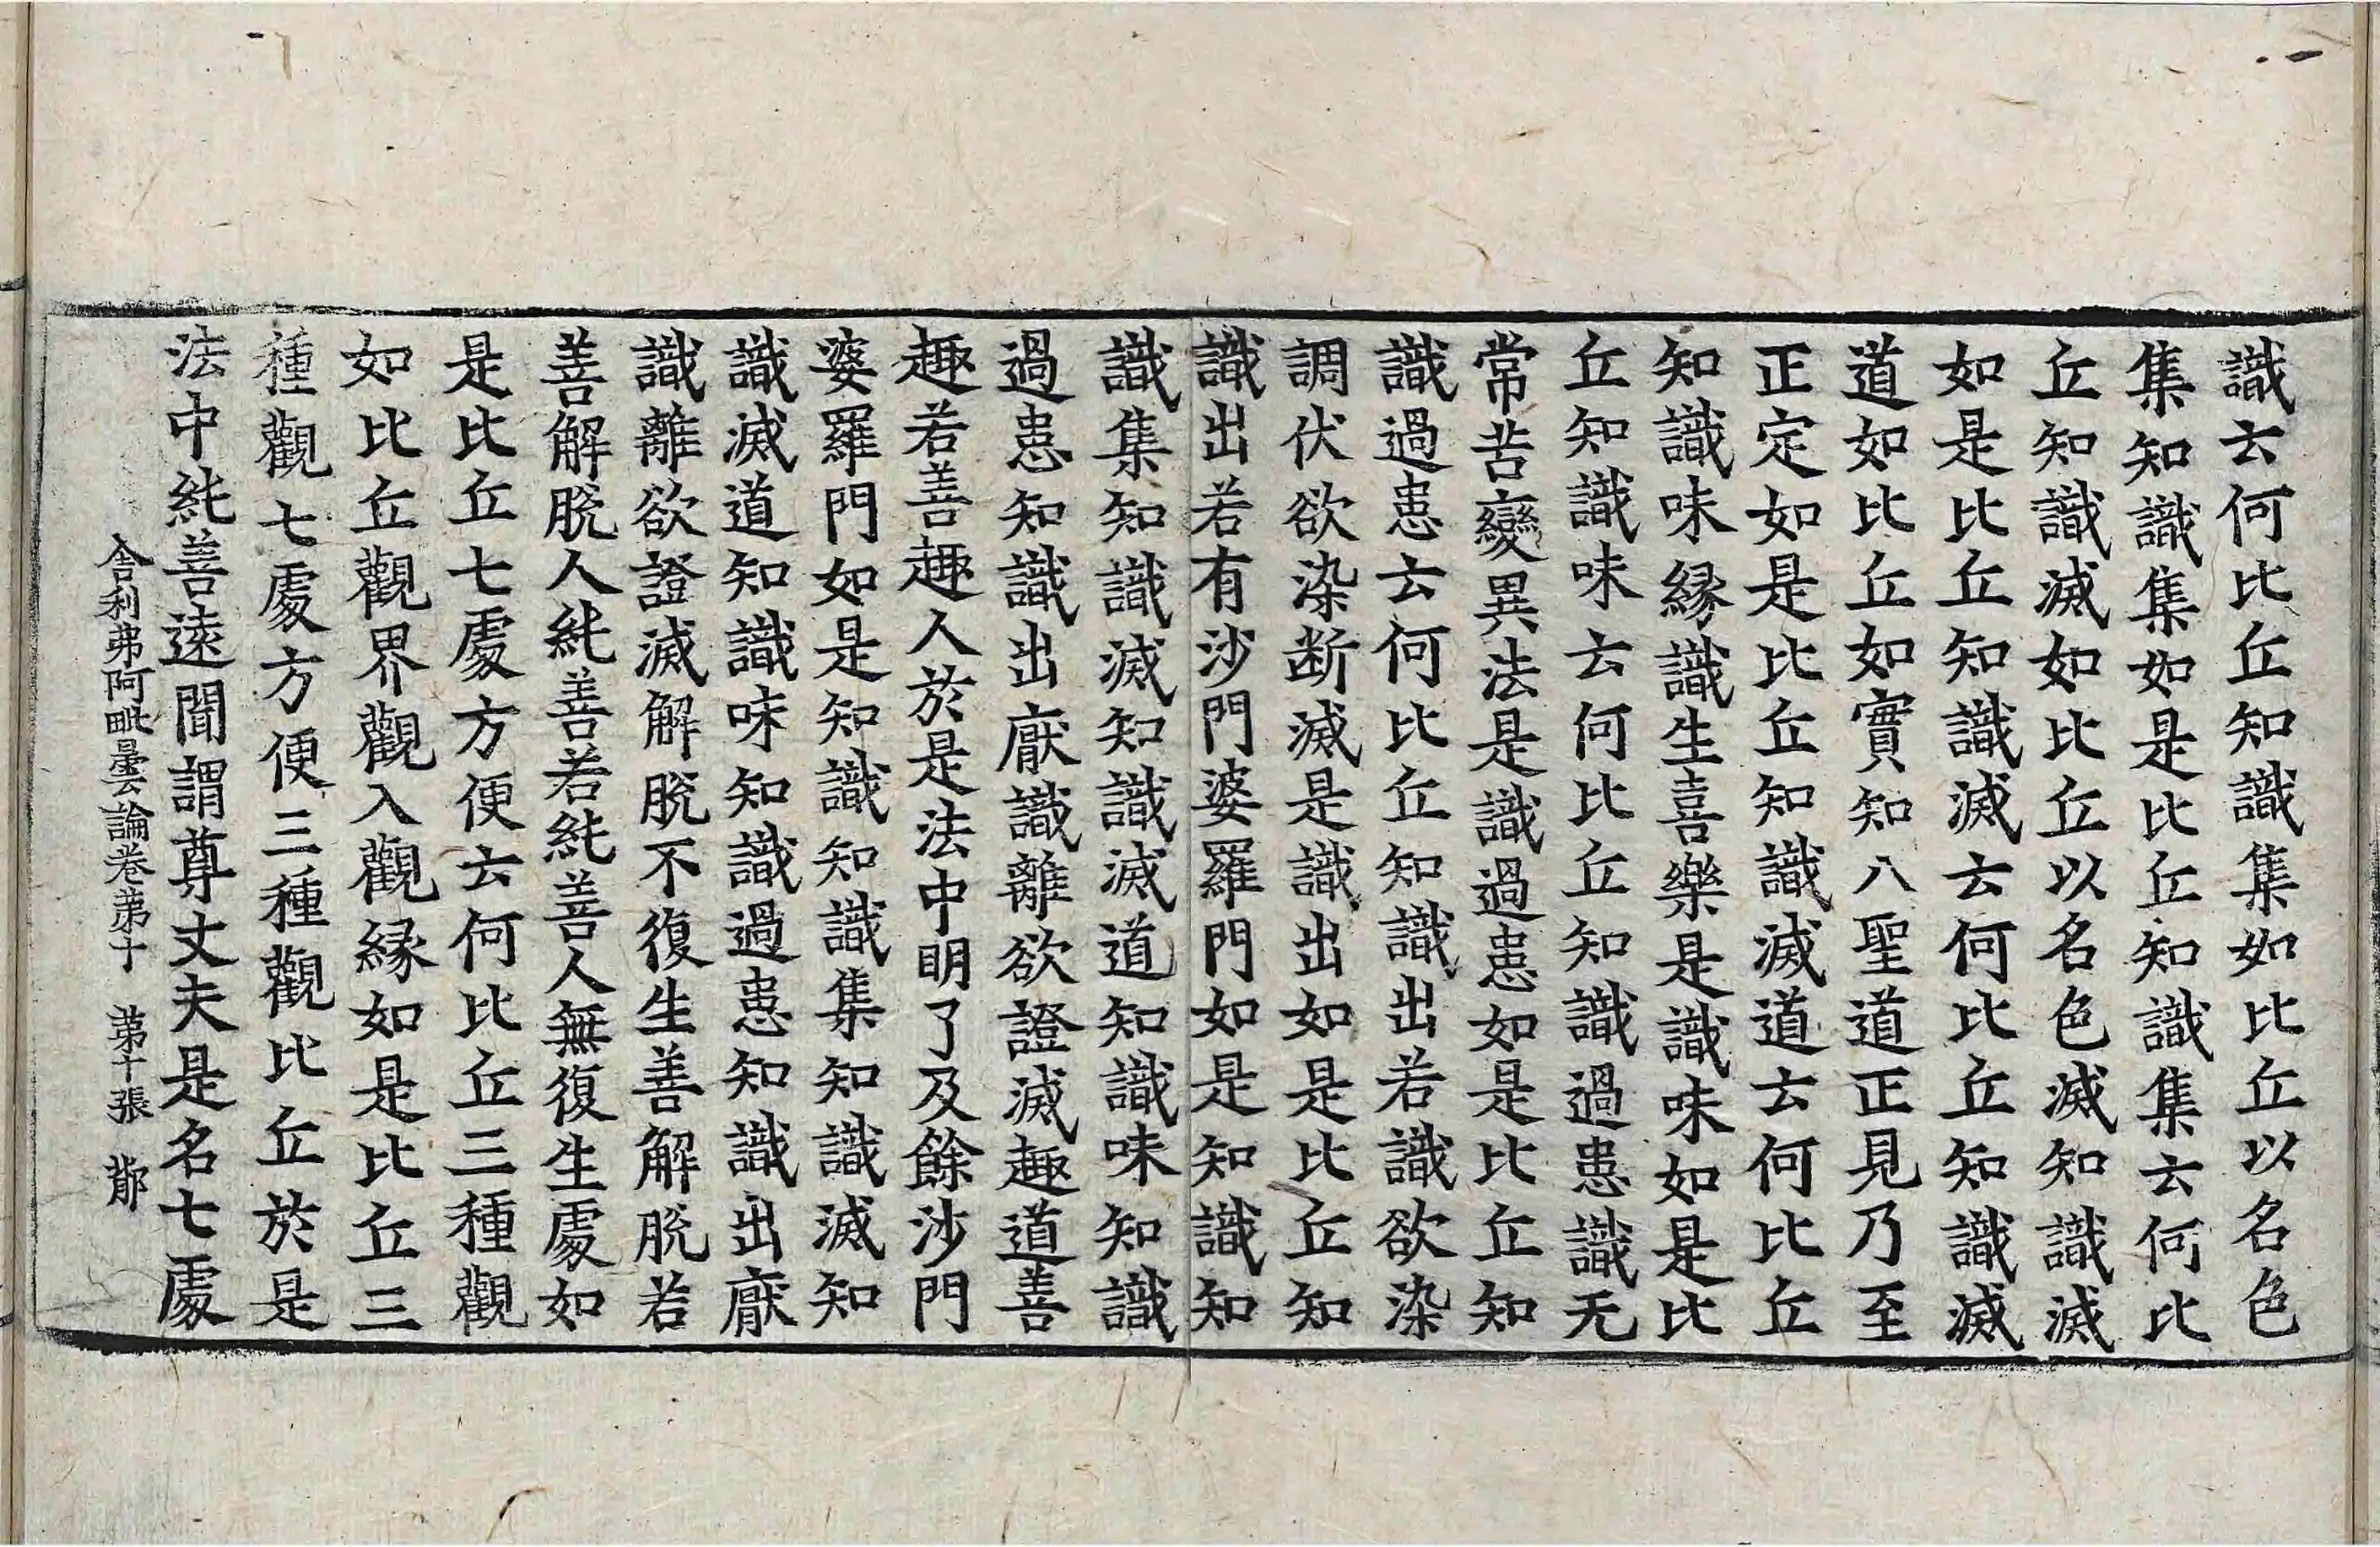 識云何比丘知識集如比丘以名色
集知識集如是比丘知識集云何比
丘知識滅如比丘以名色滅知識滅
如是比丘知識滅云何比丘知識滅
道如比丘如實知八聖道正見乃至
正定如是比丘知識滅道云何比丘
知識味緣識生喜樂是識味如是比
丘知識味云何比丘知識過患識无
常苦變異法是識過患如是比丘知
識過患云何比丘知識出若識欲染
調伏欲染断滅是識出如是比丘知
識出若有沙門婆羅門如是知識知
識集知識滅知識滅道知識味知識
過患知識出厭識離欲證滅趣道善
趣若善趣人於是法中明了及餘沙門
婆羅門如是知識知識集知識滅知
識滅道知識味知識過患知識出厭
識離欲證滅解脫不復生善解脫若
善解脫人純善若純善人無復生處如
是比丘七處方便云何比丘三種觀
如比丘觀界觀入觀緣如是比丘三
種觀七處方便三種觀比丘於是
法中純善遠聞謂尊丈夫是名七處
舍利弗阿毗曇論卷第十　第十張